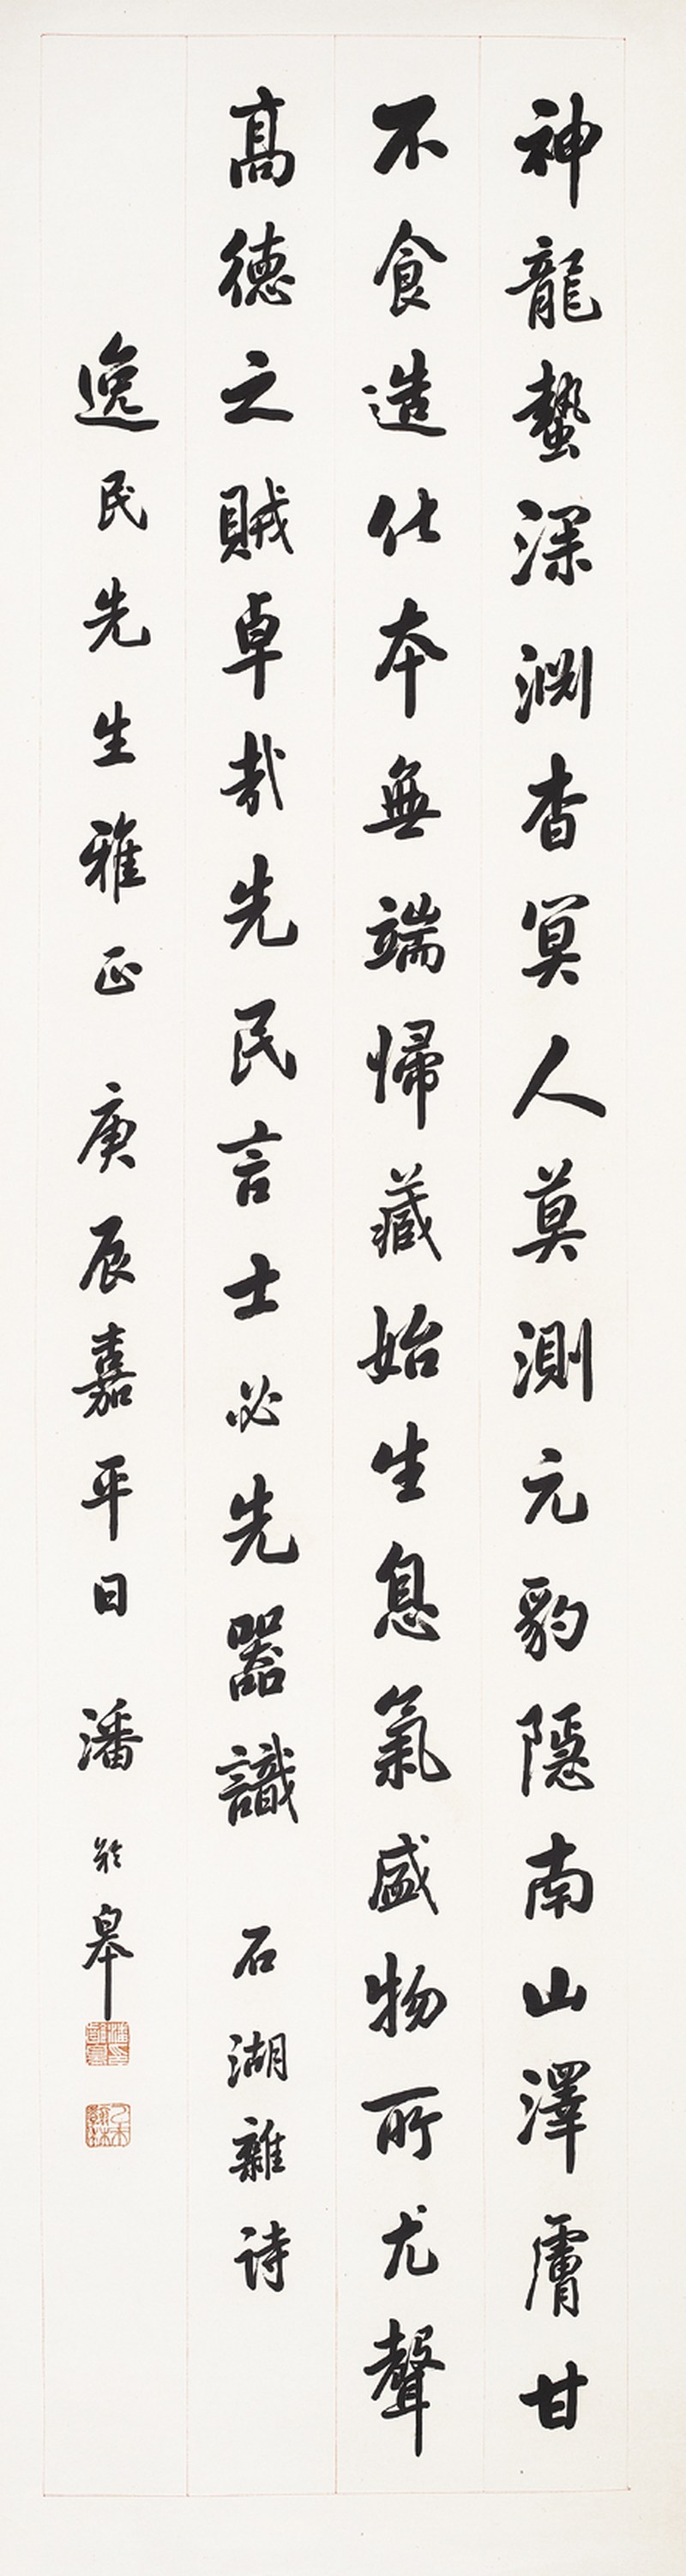 神龍蟄深淵杳冥人莫測元豹隱南山澤膚甘
不食造化本無端歸藏始生息氣盛物所尤聲
高德之賊卓哉先民言士必先器識 石湖雜詩
逸民先生雅正 庚辰嘉平日 潘齡皋
潘印齡皋
乙未翰林